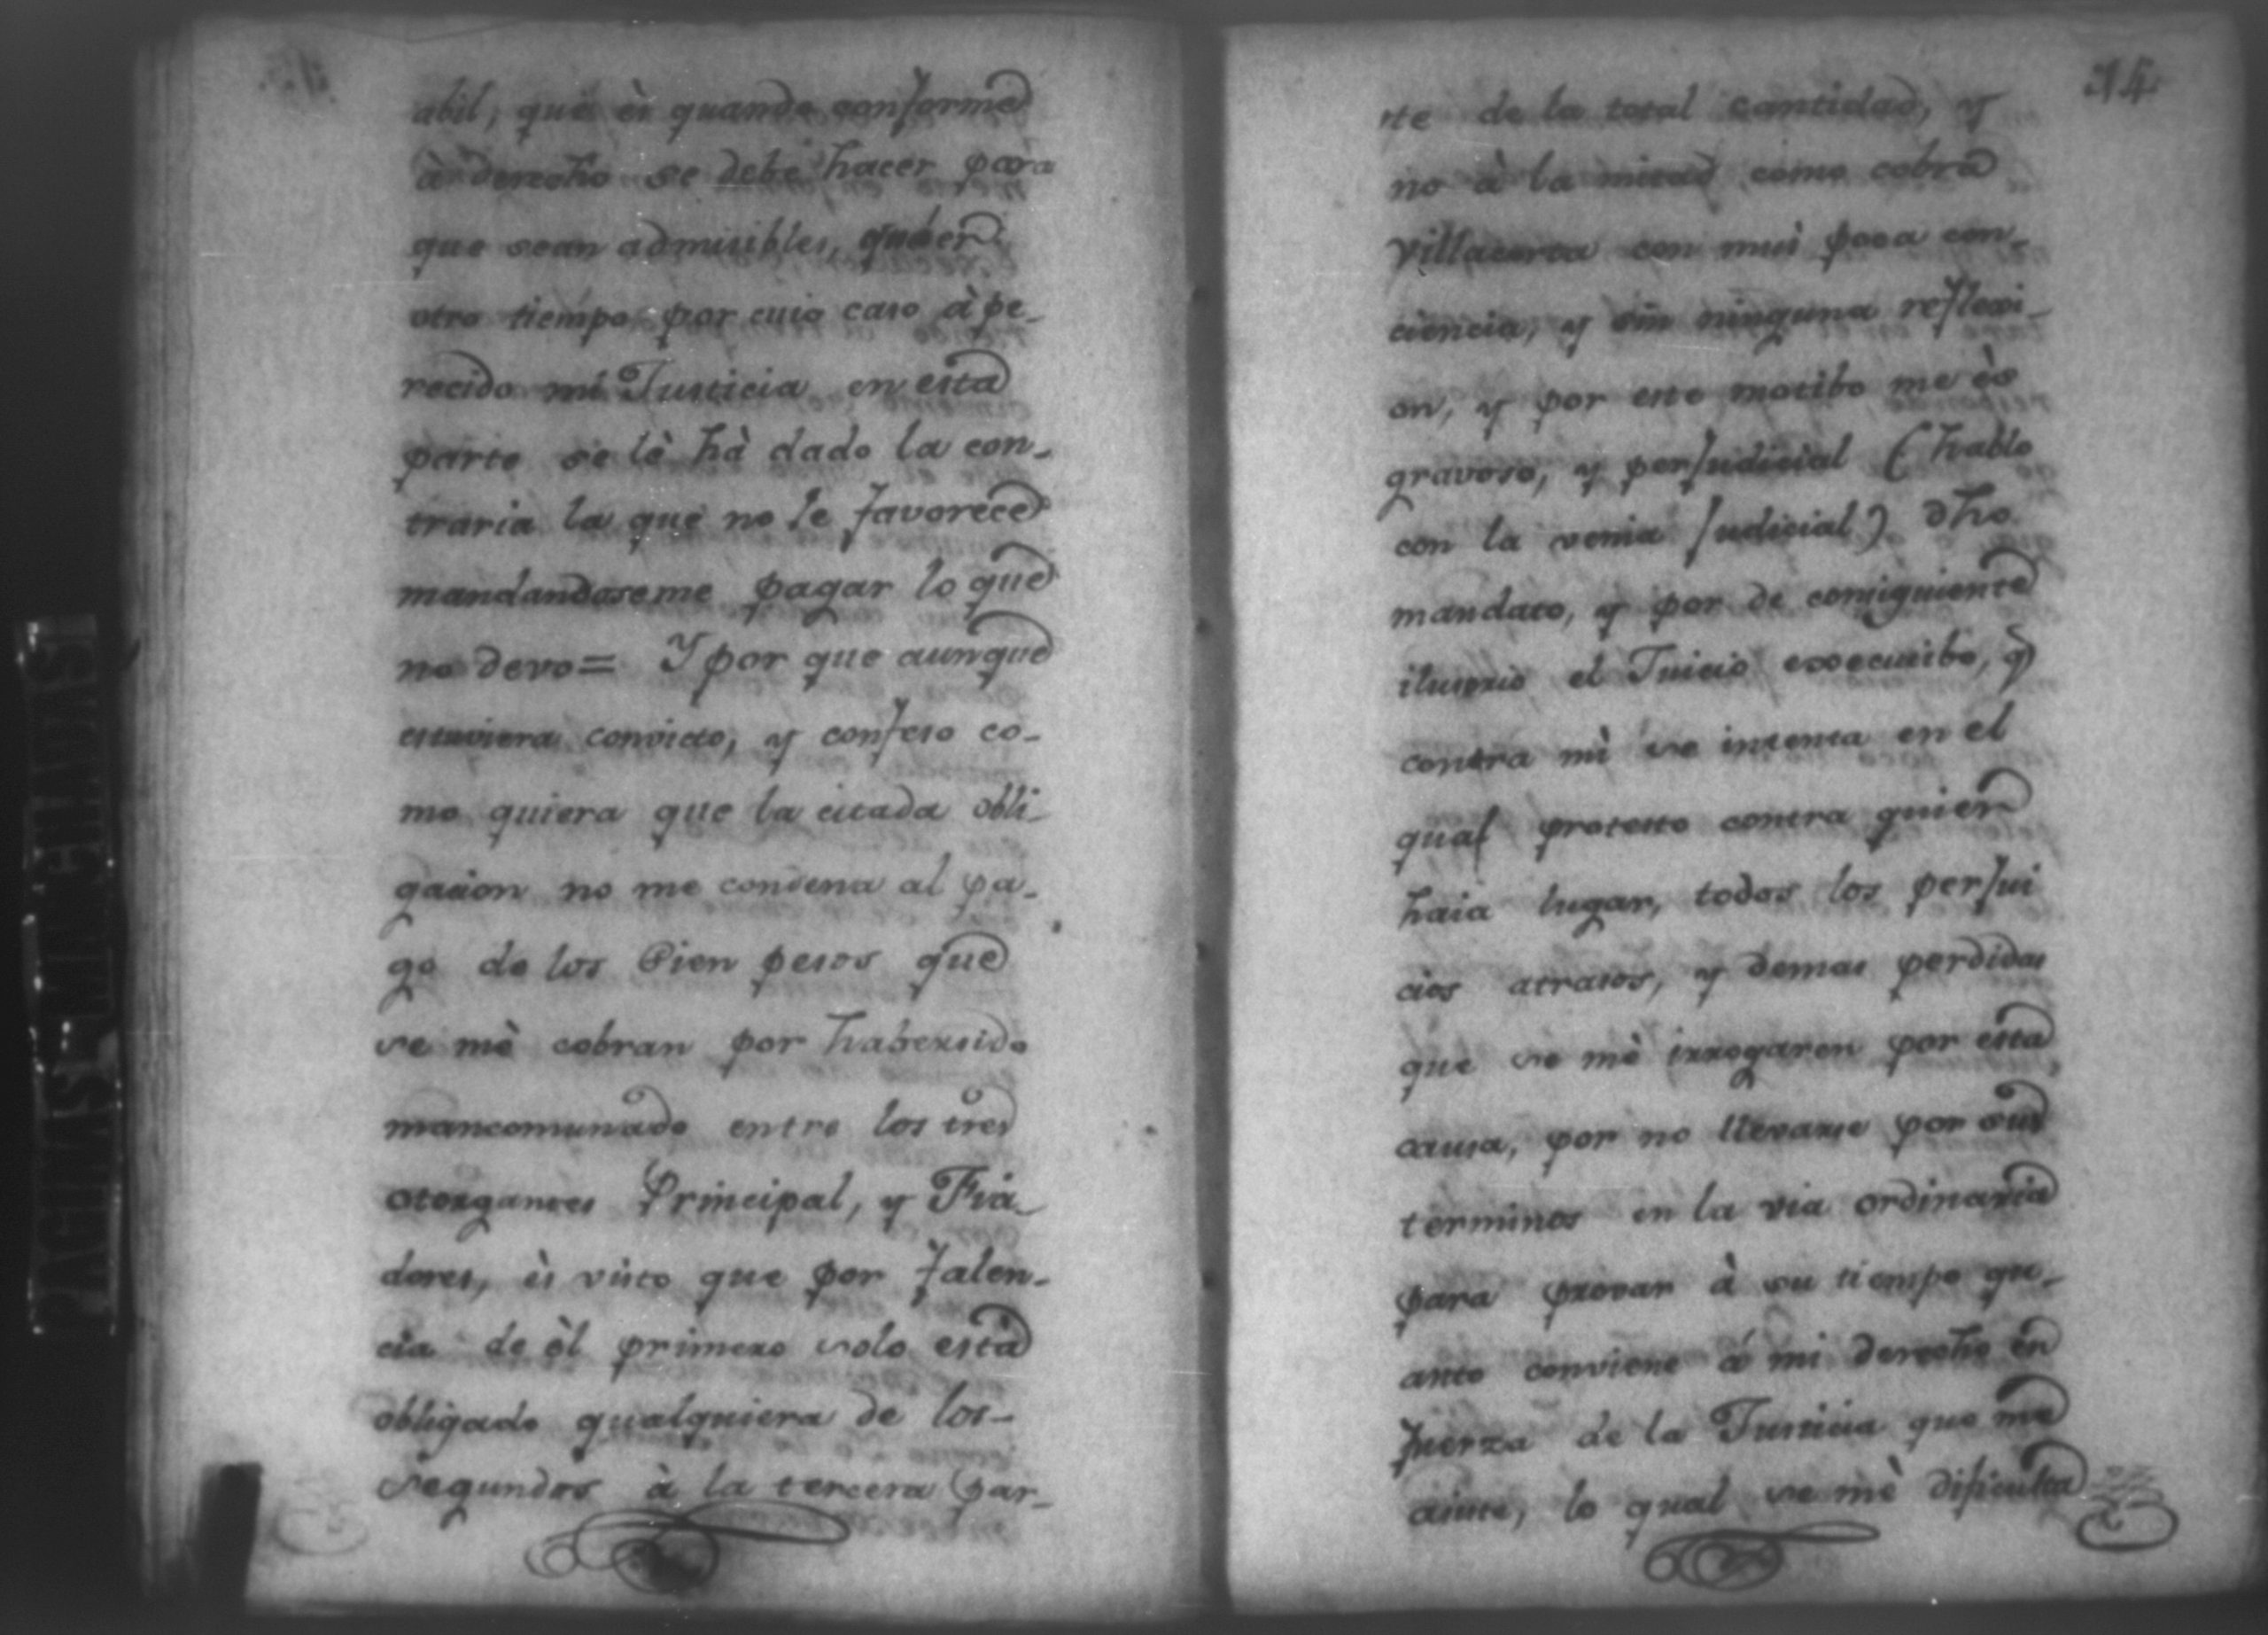 abil, que ès quando conforme
à derecho se debe hacer para
que sean admisibles, que en
otro tiempo por cuio caso à pe-
recido mi Justicia en esta
parte se lè hà dado la con-
traria la que no le favorece
mandandoseme pagar lo que
no devo = Y por que aunque
estuviera convicto, y confeso co-
mo quiera que la citada obli-
gacion no me condena al pa-
go de los Cien pesos que
se mè cobran por habersido
mancomunado entre los tres
otorgantes Principal, y Fia-
dores, ès visto que por falen-
cia de èl primero solo està
obligado qualquiera de los-
Segundos à la tercera par-
14
rte de la total cantidad, y
no à la mitad como cobra
Villacorta con mui poca con-
ciencia, y sin ninguna reflexi-
on, y por este motibo me ès
gravoso, y perjudicial (hablo
con la venia Judicial) dho
mandato, y por de consiguiente
ilusorio el Juicio executibo, q̃
contra mì se intenta en el
qual protesto contra quien
haia lugar, todos los perjui
cios atrasos, y demas perdidas
que se mè irrogaren por esta
causa, por no llevarse por sus
terminos en la via ordinaria
para provar à su tiempo qu-
anto conviene á mi derecho en
fuerza de la Justicia que me
asiste, lo qual se mè dificulta
PAGINAS MUY CHADAS